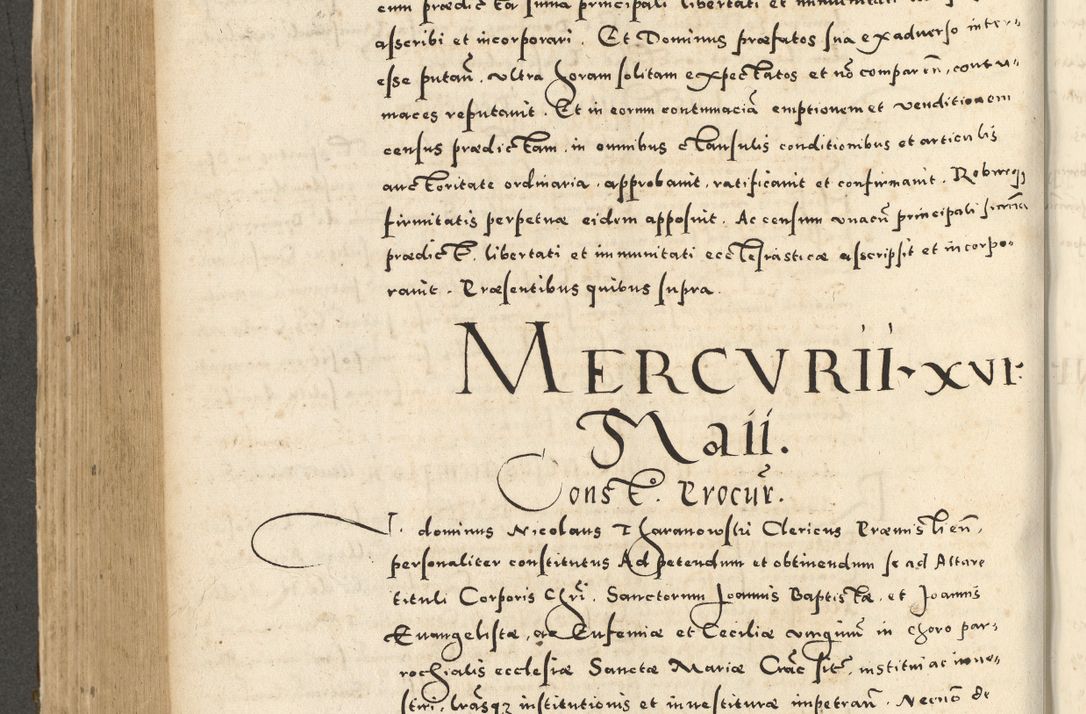 cum prædicta suma principali libertati et immunitati
asscribi et incorporari. Et Dominus præfatos sua ex adverso inter-
esse putan̄. ultra horam solitam expectatos et nō comparen̄, contu-
maces reputavit. Et in eorum contumaciā emptionem et venditionem
census prædictam. in omnibus clausulis conditionibus et articulis
auctoritate ordinaria. approbavit, ratificavit et confirmavit. Roburqȝ
firmitatis perpetuæ eidem apposuit. Ac censum unacū principali summa
prædict. libertati et immunitati ecclesiasticæ asscripsit et incorpo-
ravit. Præsentibus quibus supra.
MERCVRII XVI
Maii.
Constᵒ. Procur̄.
D. dominus Nicolaus Tharanowski Clericus Præmislien̄,
personaliter constitutus Ad petendum et obtinendum se ad Altare
tituli Corporis Chri̅. Sanctorum Joannis Baptistæ, et Joannis
Evangelistæ, ac Eufemiæ et Ceciliæ virginum in choro par-
rochialis ecclesiæ Sanctæ Mariæ Crac̄ sitē, institui ac inve-
stiri, lrāsqȝ institutionis et investituræ impetran̄. Necnō de